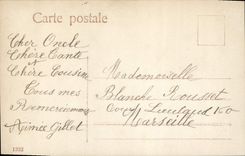 Carte postale
Cher Oncle
Chère Tante
et
Chère Cousine
Tous mes
Remerciements
Aimée Gillot
Mademoiselle
Blanche Rousset
Cours Lieutaud 150
Marseille
1332